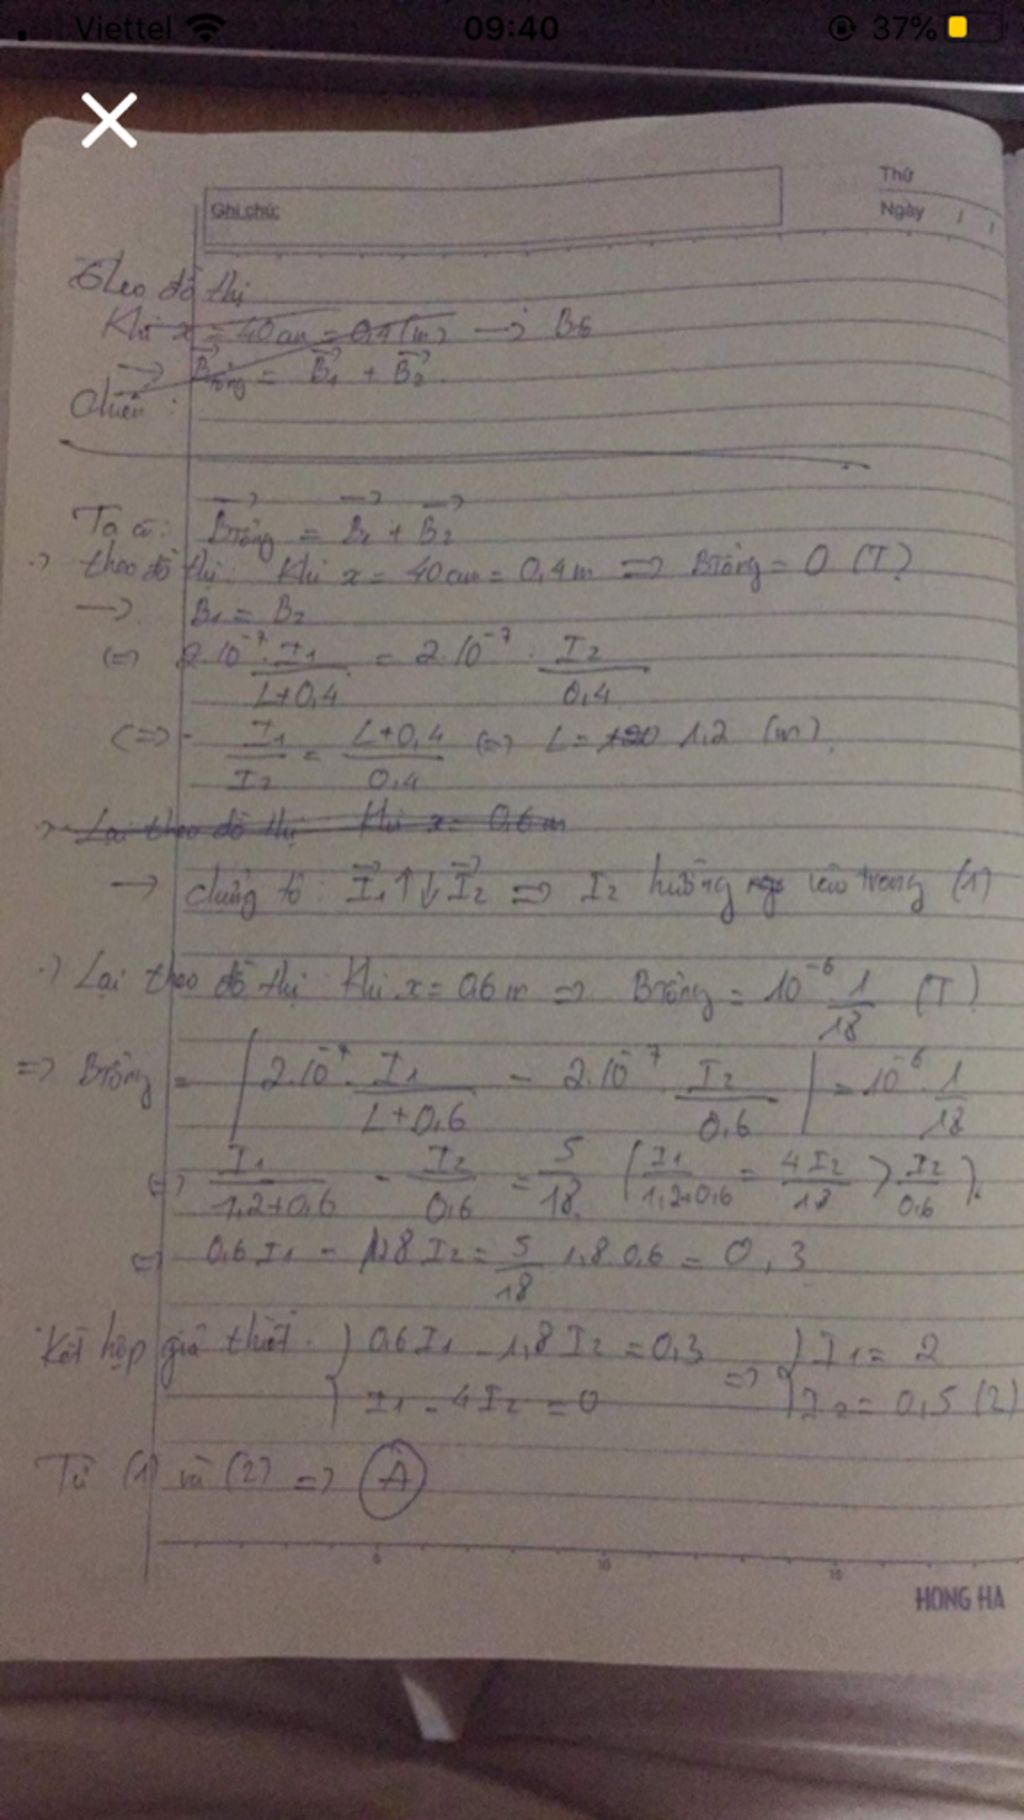 Viettel 09:40 37%
Thứ
Ghi chú:
Ngày / /
Theo đồ thị
Khi x = 40cm = 0,4 (m) →
→ B tổng = B₁ + B₂.
:
Ta có: B Tổng = B₁ + B₂
·) theo đồ thị: Khi x = 40cm = 0,4m => B Tổng = 0 (T)
→ B₁ = B₂
(=) 2.10⁻⁷. I₁/(L+0,4) = 2.10⁻⁷. I₂/0,4
(=>) I₁/I₂ = (L+0,4)/0,4 (=) L = 1,2 (m).
·) Lại theo đồ thị Khi x = 0,6m
→ chứng tỏ: I₁↑↓I₂ => I₂ hướng vào trong (1)
·) Lại theo đồ thị Khi x = 0,6m => B Tổng = 10⁻⁶. 1/18 (T)
=> B Tổng = | 2.10⁻⁷. I₁/(L+0,6) - 2.10⁻⁷. I₂/0,6 | = 10⁻⁶. 1/18
(=) I₁/(1,2+0,6) - I₂/0,6 = 5/18. (I₁/(1,2+0,6) = 4I₂/1,8 > I₂/0,6).
(=) 0,6I₁ - 1,8I₂ = 5/18 1,8.0,6 = 0,3
Kết hợp giả thiết. } 0,6I₁ - 1,8I₂ = 0,3 => } I₁ = 2
I₁ - 4I₂ = 0 I₂ = 0,5 (2)
Từ (1) và (2) => A
5 10 15
HONG HA